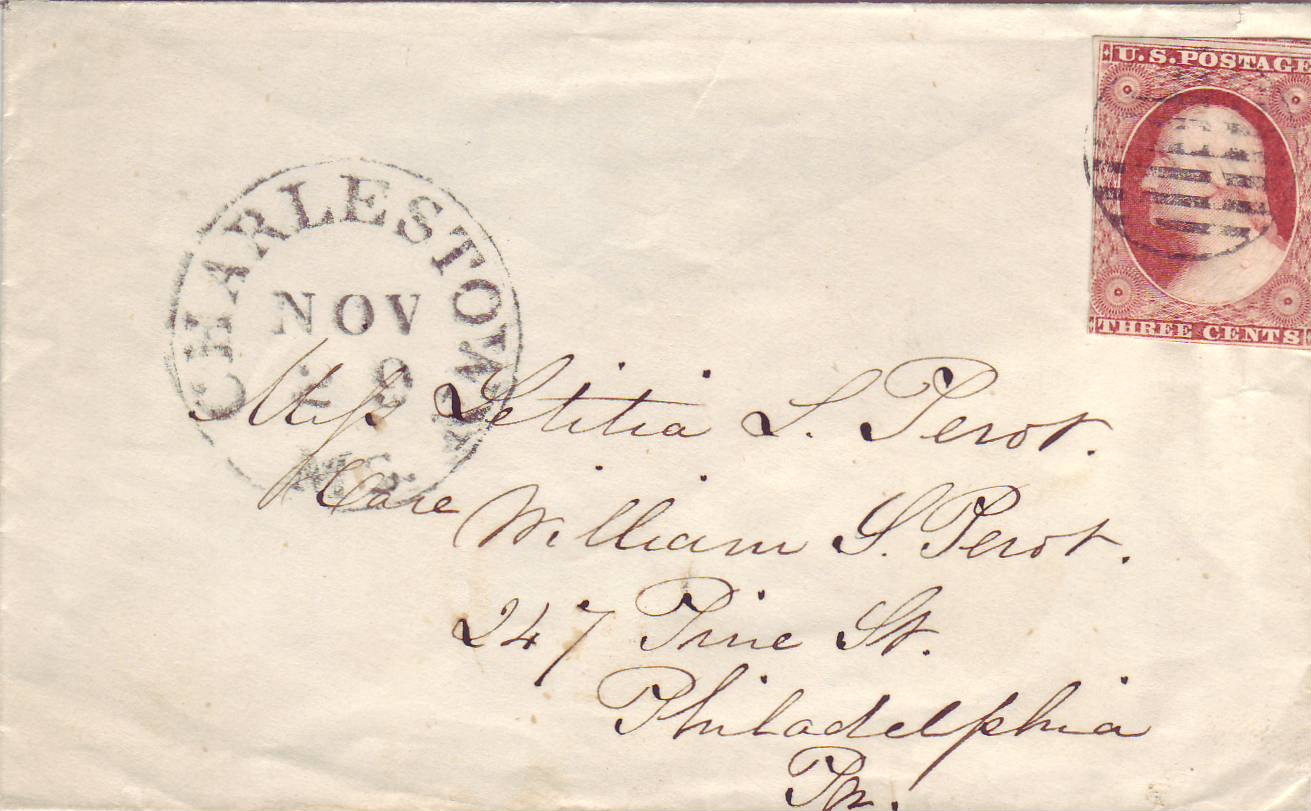 U.S. POSTAGE
THREE CENTS
CHARLESTOWN
NOV
Miss Letitia L. Perot.
Care William S. Perot.
247 Pine St.
Philadelphia
Pa.